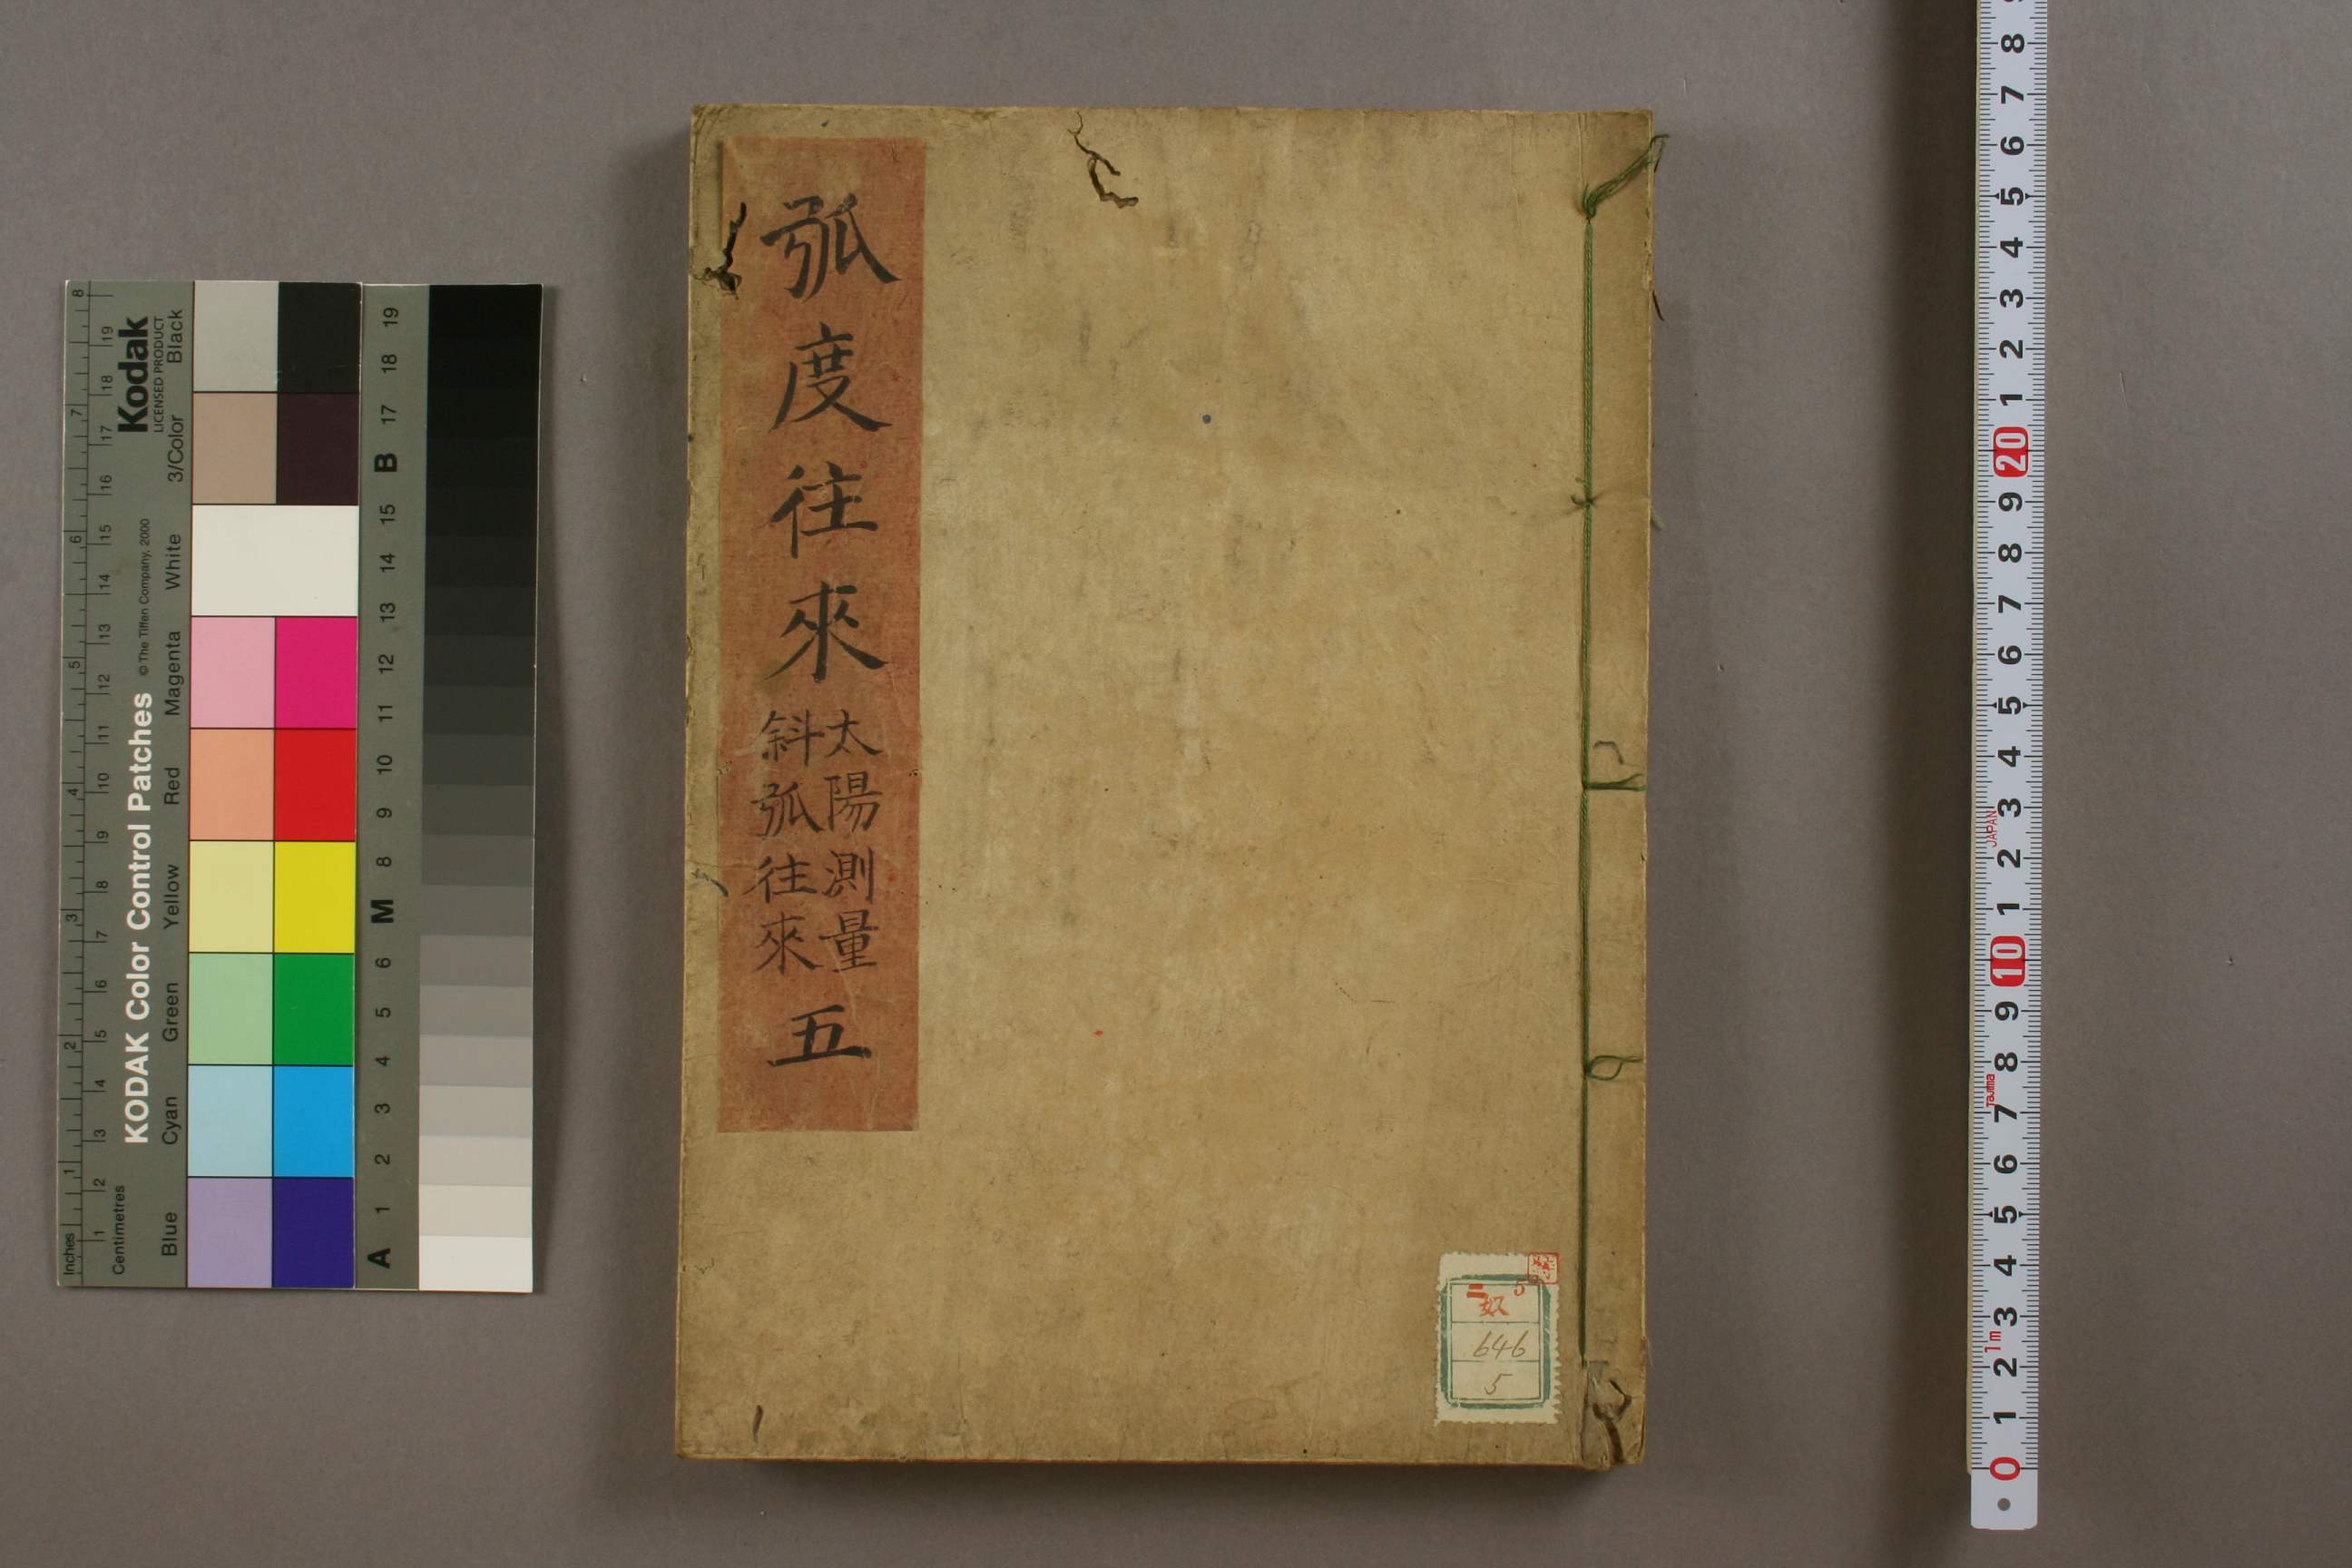 弧度往來
太陽測量
斜弧往來
五
5
奴
646
5
KODAK Color Control Patches
© The Tiffen Company, 2000
Kodak
LICENSED PRODUCT
Inches
1 2 3 4 5 6 7 8
Centimetres
1 2 3 4 5 6 7 8 9 10 11 12 13 14 15 16 17 18 19
Blue
Cyan
Green
Yellow
Red
Magenta
White
3/Color
Black
A 1 2 3 4 5 6 M 8 9 10 11 12 13 14 15 B 17 18 19
0 1 2 3 4 5 6 7 8 9 10 1 2 3 4 5 6 7 8 9 20 1 2 3 4 5 6 7 8
1m
Tajima
JAPAN